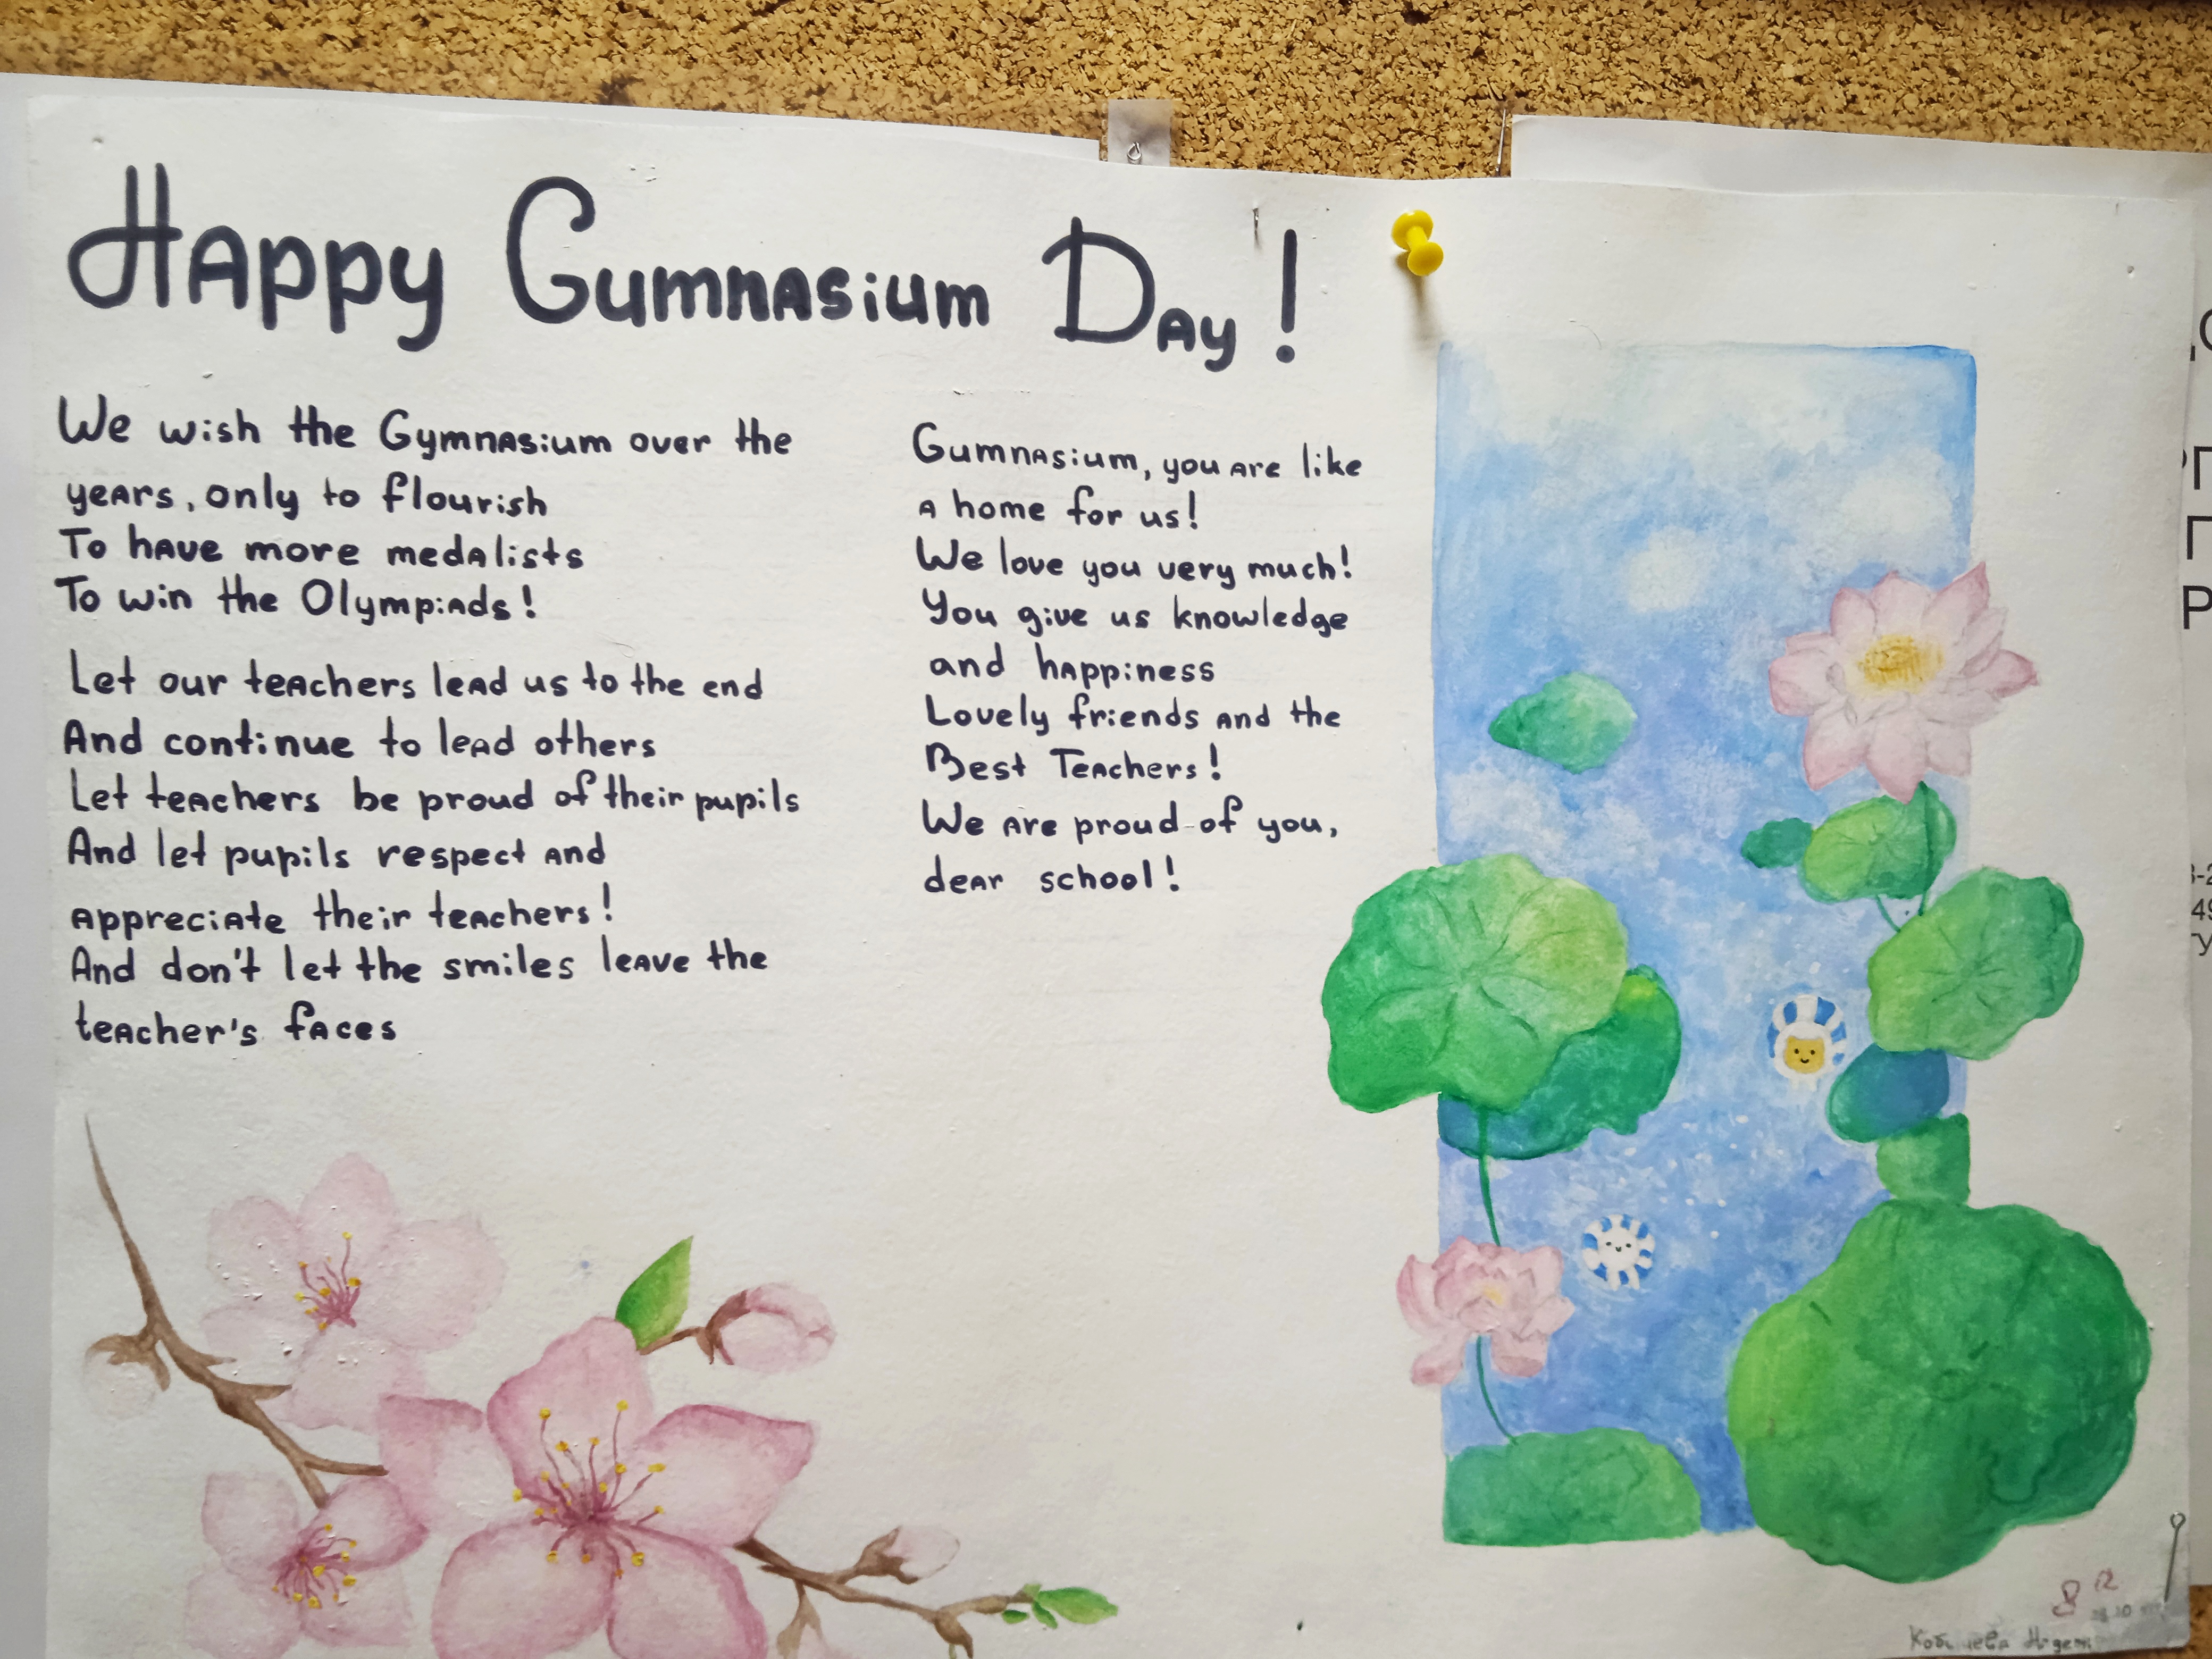 Happy Gumnasium Day!
We wish the Gymnasium over the
years, only to flourish
To have more medalists
To win the Olympiads!
Let our teachers lead us to the end
And continue to lead others
Let teachers be proud of their pupils
And let pupils respect and
appreciate their teachers!
And don't let the smiles leave the
teacher's faces
Gumnasium, you are like
a home for us!
We love you very much!
You give us knowledge
and happiness
Lovely friends and the
Best Teachers!
We are proud of you,
dear school!